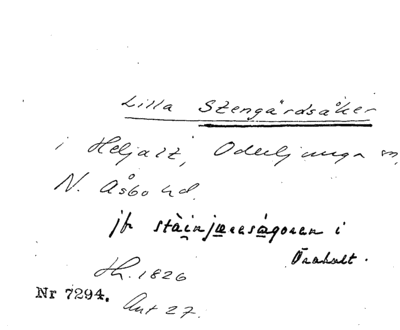 Lilla Stengårdsåker
i Heljalt, Oderljunga sn,
N. Åsbo hd.
jfr stàinjæresågoren i
Öraholt.
Lh. 1826
Nr 7294. Ant 27.